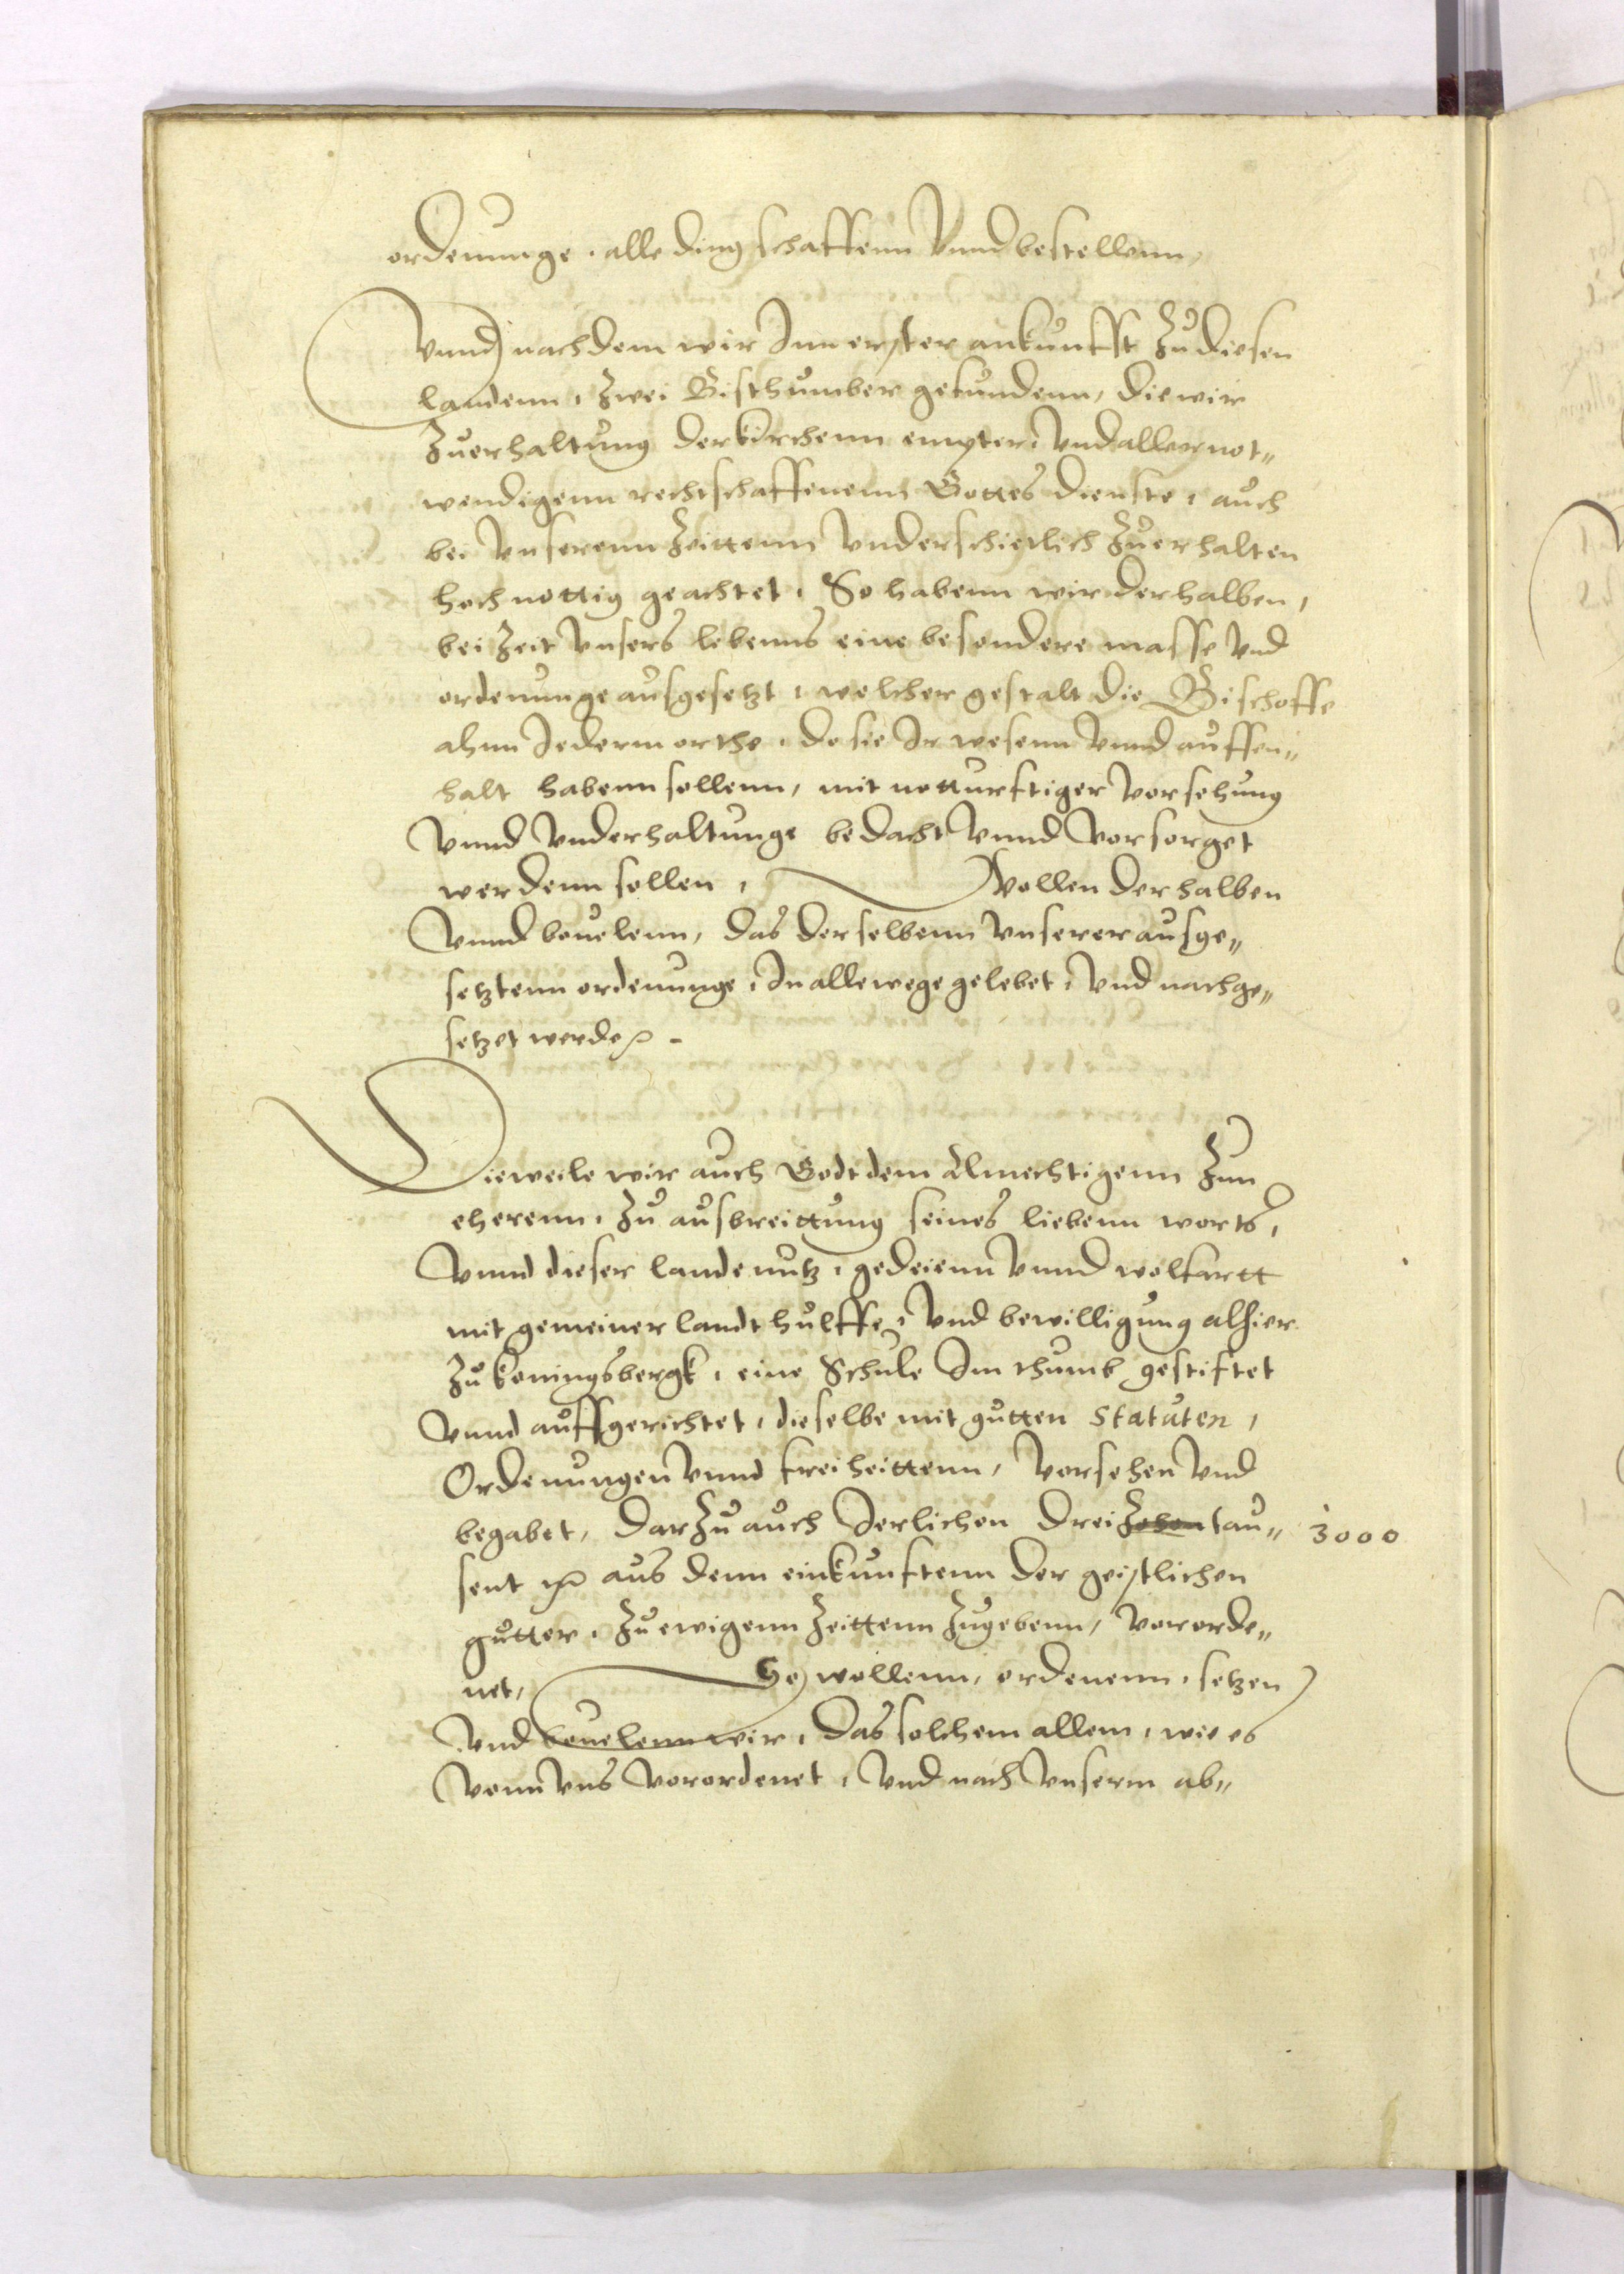 ordenunge, alle ding schaffenn Vnnd bestellenn,
Vnnd nach dem wir Inn erster ankunfft Zu diesen
landenn, Zwei Bisthumber gefundenn, die wir
Zuerhaltung der kirchenn empter, Vnd aller not„
wendigenn rechtschaffenenn Gottes dienste, auch
bei Vnserenn Zeittenn Vnderschietlich Zuerhalten
hoch nottig geachtet, So habenn wir derhalben,
bei Zeit Vnsers lebenns eine besondere masse Vnd
ordenunge ausgesetzt, welcher gestalt die Bischoffe
ahnn Jederm orthe, do sie Ir wesenn Vnnd auffen„
halt habenn sollenn, mit notturftiger Vorsehung
Vnnd Vnderhaltunge bedacht Vnnd Vorsorget
werdenn sollen, Wollen derhalben
Vnnd beuelenn, das derselbenn Vnserer ausge„
setztenn ordenunge, In allewege gelebet, Vnd nachge„
setzet werde.
Dieweile wir auch Godt dem Almechtigenn Zun
eherenn, Zu ausbreittung seines liebenn worts,
Vnnd dieser lande nutz, gedeienn Vnnd wolfartt
mit gemeiner landt hulffe, Vnd bewilligung alhier
Zu koningsbergk, eine Schule Im thumb gestiftet
Vnnd auffgerichtet, dieselbe mit gutten Statuten,
Ordenungen Vnnd freiheittenn, Vorsehen Vnd
begabet, darzu auch Jerlichen dreizehen tau„ 3000
sent aus denn einkunftenn der geistlichen
gutter, Zu ewigenn Zeittenn Zugebenn, Vororde„
net, So wollenn, ordenenn, setzen
Vnd beuelenn wir, das solchem allem, wie es
Vonn Vns Vorordenet, Vnd nach Vnserm ab„